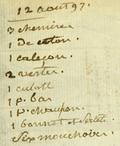 12 aout 97.
3 chemises
1 de coton.
1 caleçon.
2 vestes
1 culott
1 p. bas
1 p. chausson
1 bonnet et
Six mouchoirs.